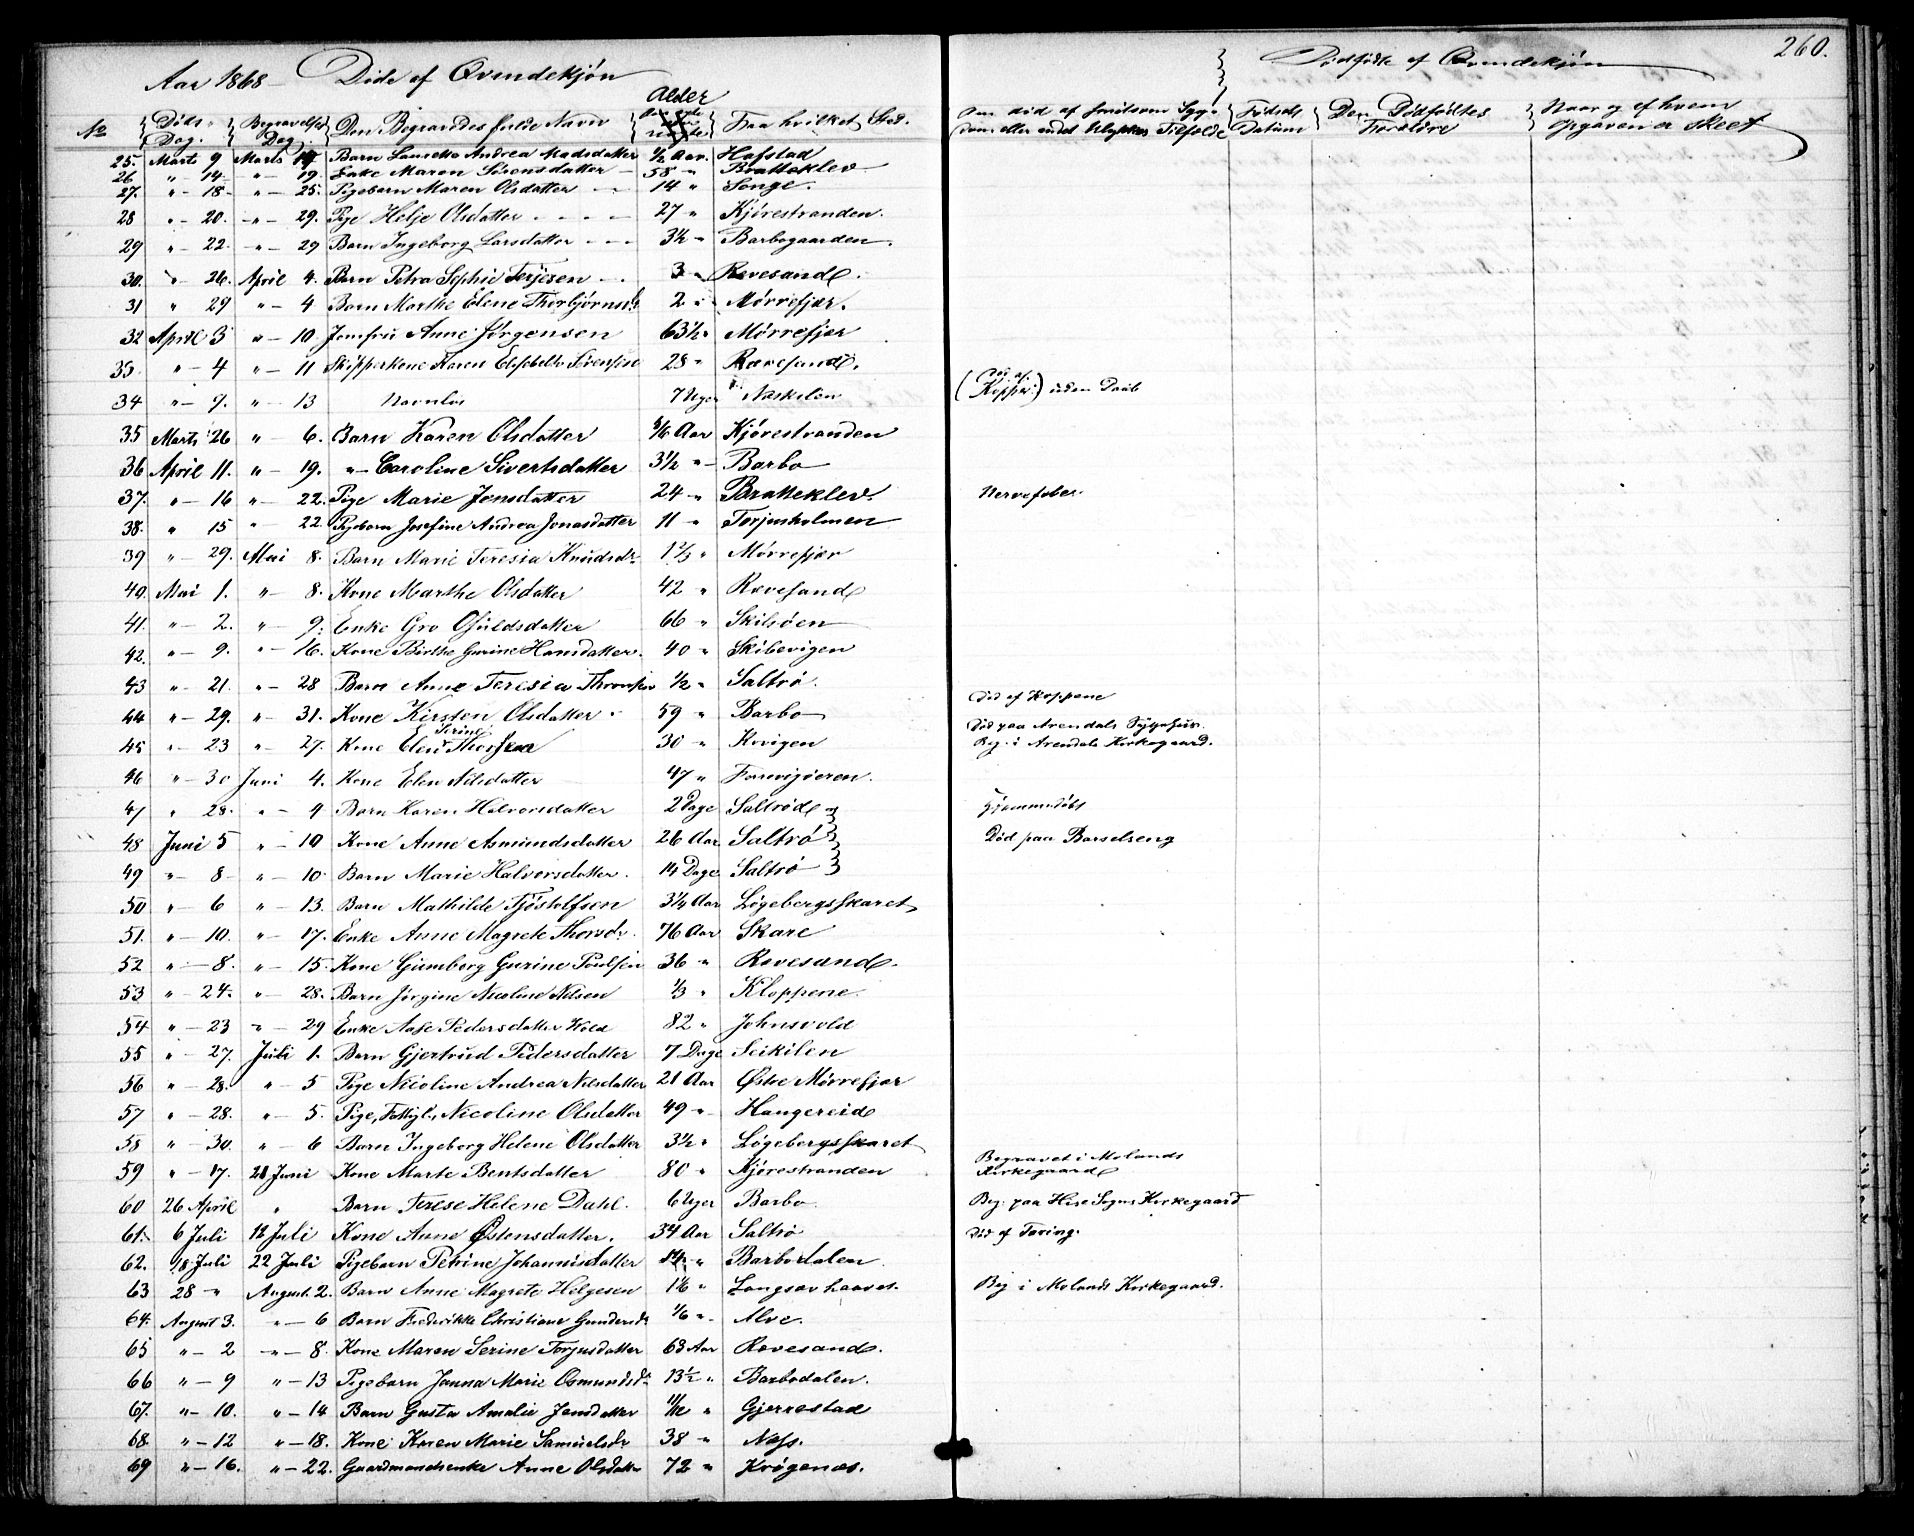 Aar 1868 – Døde af Qvindekjøn
Dødfødte af Qvindekjøn
260.
No Døds Dag. Begravelses Dag. Den Begravedes fulde Navn Alder Fra hvilket Sted.
Om død af smitsom Syg- Fødsels Den Dødfødtes Naar og af hvem
dom eller andet Ulykkes Tilfælde Datum Forældre Opgaven er skeet
25. Marts 9 Marts 19 Barn Laurette Andrea Madsdatter ½ Aar. Hofstad
26 " – 14. " – 19. Enke Maren Sørensdatter – 58 " Bratteklev
27. " – 18 – " – 25. Pigebarn Maren Olsdatter – 14 " Songe.
28 " – 20. – " – 29. Pige Helje Olsdatter – 27 " Kjørestranden.
29 " – 22. – " – 29 Barn Ingeborg Larsdatter – 3½ " Barbogaarden.
30. " – 26. April 4. Barn Petra Sophie Terjesen – 3 " Rævesand.
31 " 29 " – 4 Barn Marthe Elene Thorbjørnsd. 2 " Mørrefjær.
32 April 3 " – 10. Jomfru Anne Jørgensen 63½ " Mørrefjær
33. " – 4 " – 11 Skipperkone Karen Elisabeth Sørensen 28 " Rævesand.
34 " – 9. " – 13 Navnløs 7 Uger Naskilen (Død af Kopper) uden Daab
35 Marts 26 " – 6. Barn Karen Olsdatter Aar Kjørestranden
36 April 11. " – 19. " – Caroline Sivertsdatter 3½ " – Barbo
37. " – 16 " – 22. Pige Marie Jensdatter 24 " Bratteklev. Nervefeber.
38. " 15 " – 22 Pigebarn Josefine Andrea Jonasdatter 11 " Torjusholmen
39 " – 29. Mai 8. Barn Marie Teresia Knudsdr. 1⅔ " Mørrefjær
40. Mai 1. " – 8. Kone Marthe Olsdatter 42 " Rævesand
41. " – 2. " – 9. Enke Gro Osuldsdatter 66 " Skilsøen
42. " – 9. " – 16. Kone Birthe Gurine Hansdatter. 40 " Skibevigen
43 " – 21. " – 28 Barn Anne Teresia Thronsen ½ " Saltrø.
44 " – 29. " – 31. Kone Kirsten Olsdatter 59 " Barbo Død af Koppene
45 " – 23 " – 27. Kone Elen Serine 30 " Kvigen Død paa Arendals Sygehus. Beg. i Arendals Kirkegaard.
46 " – 30 Juni 4. Kone Elen Nilsdatter 47 "
47 " 28. " – 4 Barn Karen Halvorsdatter 2 Dage Saltrød Hjemmedøbt
48 Juni 5 " – 10 Kone Anne Asmundsdatter 26 Aar Saltrø Død paa Barselseng
49 " – 8 " – 10. Barn Marie Halvorsdatter. 14 Dage Saltrø
50 " – 6 " – 13. Barn Mathilde Tjøstolfsen 3¼ Aar Løgebergsskaret
51. " – 10. " – 17. Enke Anne Magrete Thorsdr. 76 Aar Skare
52 " – 8. " – 15. Kone Gumborg Gurine Poulsen 36 " Rævesand.
53 " – 24. " – 28. Barn Jørgine Nicoline Nilsen ⅓ " Kloppene.
54 " – 23 " – 29 Enke Aase Pedersdatter Hold 82 " Johnsvold
55 " – 27. Juli 1. Barn Gjertrud Pedersdatter 7 Dage Seikilen
56 " – 28. " – 5 Pige Nicoline Andrea Nilsdatter 21 Aar Østre Mørrefjær
57 " – 28. " – 5. Pige, Fattigl., Nicoline Olsdatter 49 " Haugereid
58 " – 30. " – 6 Barn Ingeborg Helene Olsdatter 3½ " Løgebergsskaret
59 " – 17. 21 Juni Kone Marte Bentsdatter 80 " Kjørestranden Begravet i Molands Kirkegaard
60 26 April " Barn Terese Helene Dahl. 6 Uger Barbo Beg. paa Hise Sogns Kirkegaard
61. 6 Juli 12 Juli Kone Anne Østensdatter. 34 Aar Saltrø Død af Tæring.
62. 18 Juli 22 Juli Pigebarn Petrine Johannisdatter 14 " Barbodalen.
63 28 " August 2. Barn Anne Magrete Helgesen 1⅙ " Langsævhaavet. Beg i Molands Kirkegaard.
64. August 3. " – 6 Barn Frederikke Christiane Gundersdr ⅙ " Alve.
65 " – 2 " – 8. Kone Maren Serine Torjusdatter 63 Aar Rævesand.
66 " – 9 " – 13 Pigebarn Janna Marie Osmundsdr. 13½ " Barbodalen.
67. " – 10. " – 14 Barn Gusta Amalie Jensdatter 11/12 " Gjerrestad
68. " – 12 " – 18. Kone Karen Marie Samuelsdr 38 " Næs.
69 " – 16. " – 22. Gaardmandsenke Anne Olsdatter 72 " Krøgenæs.